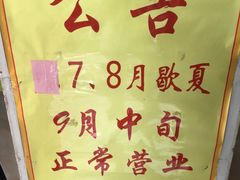 公告
7、8月歇夏
9月中旬
正常营业